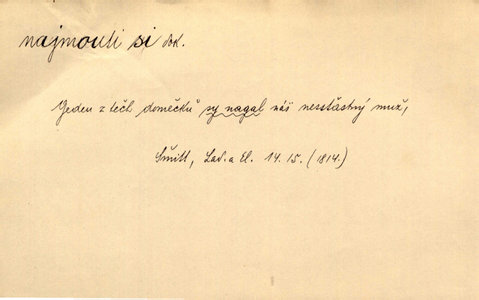 najmouti si dok.
Geden z těch domečků sy nagal náš nessťastný muž,
Šmitt, Lad. a El. 14. 15. (1814.)